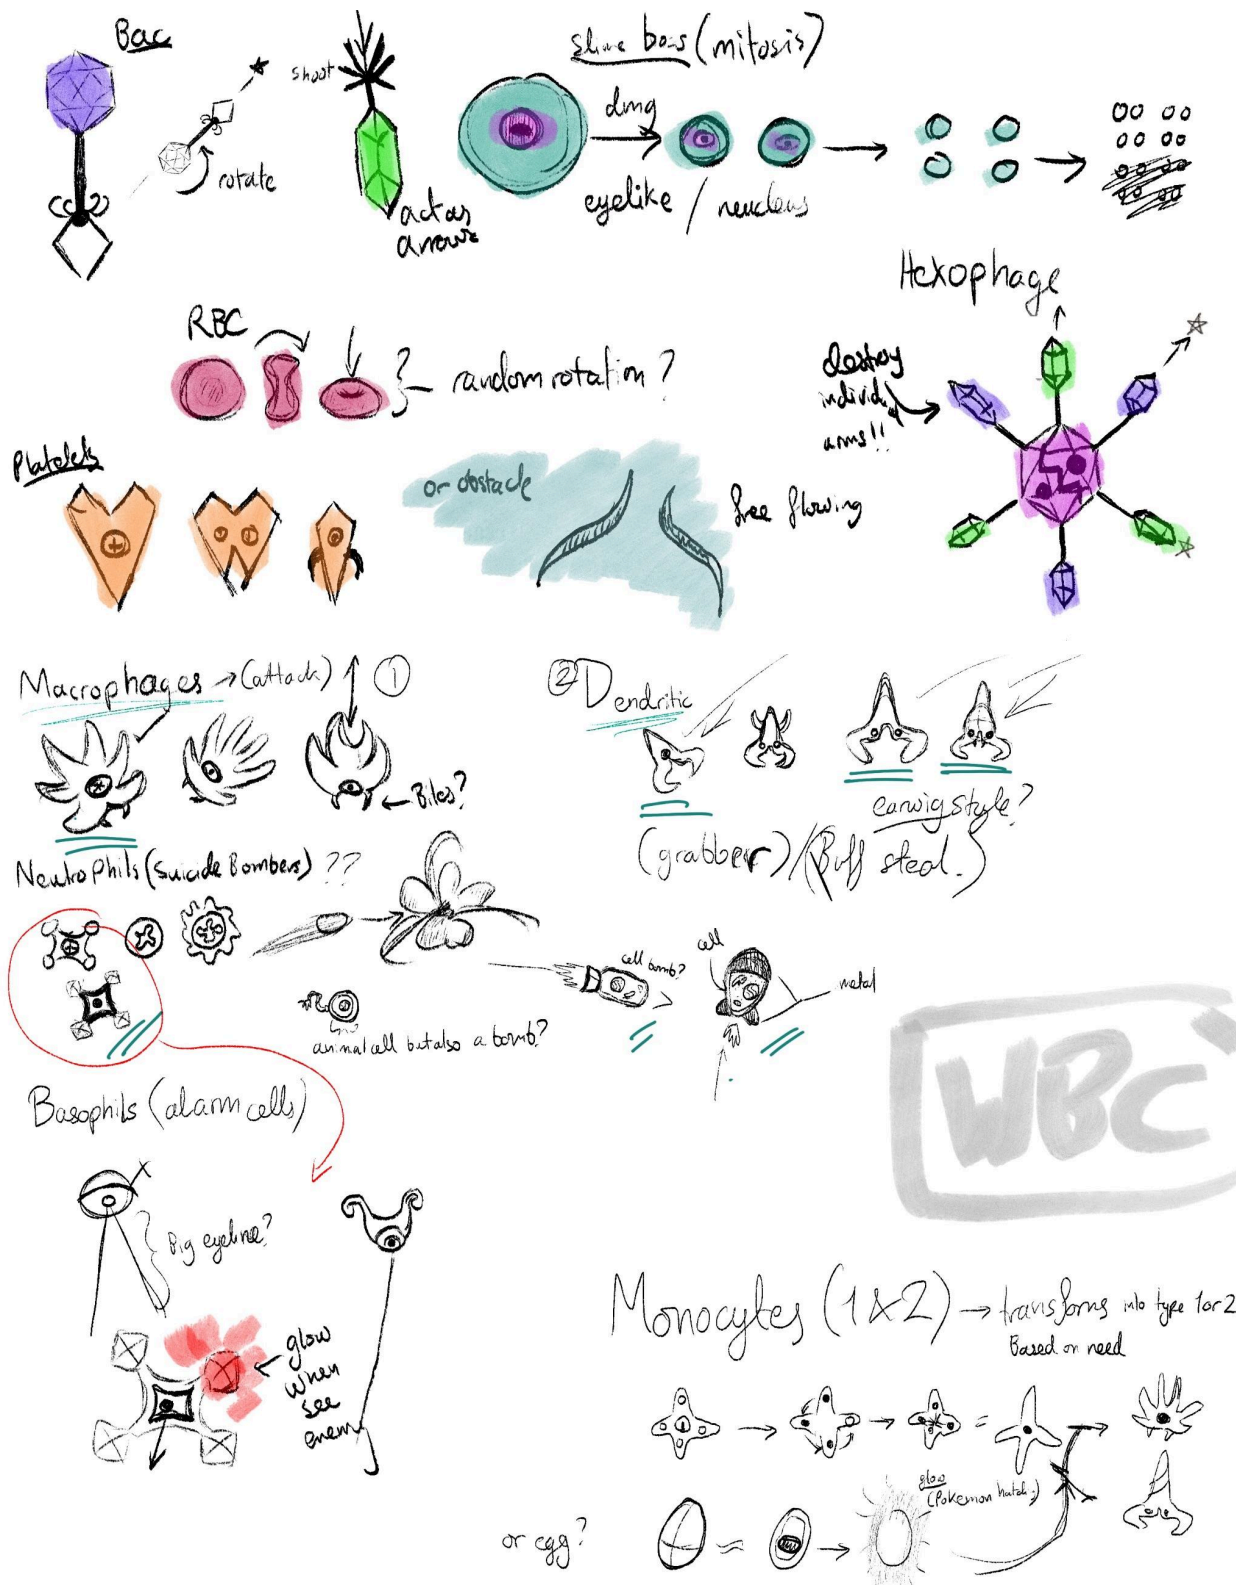 Bac
shoot
rotate
act as
arrows
slime boss (mitosis)
dmg
eyelike / neucleus
Hexophage
destroy
individual
arms!!
RBC
random rotation ?
Platelets
or obstacle
free flowing
Macrophages → (attack) ①
Bites?
② Dendritic
earwig style?
(grabber) / (Buff steal.)
Neutrophils (Suicide Bombers) ??
cell bomb?
cell
metal
animal cell but also a bomb?
WBC
Basophils (alarm cells)
Big eyeline?
glow
when
see
enemy
Monocytes (1 & 2) → transforms into type 1 or 2
Based on need
glow
(Pokemon hatch.)
or egg?